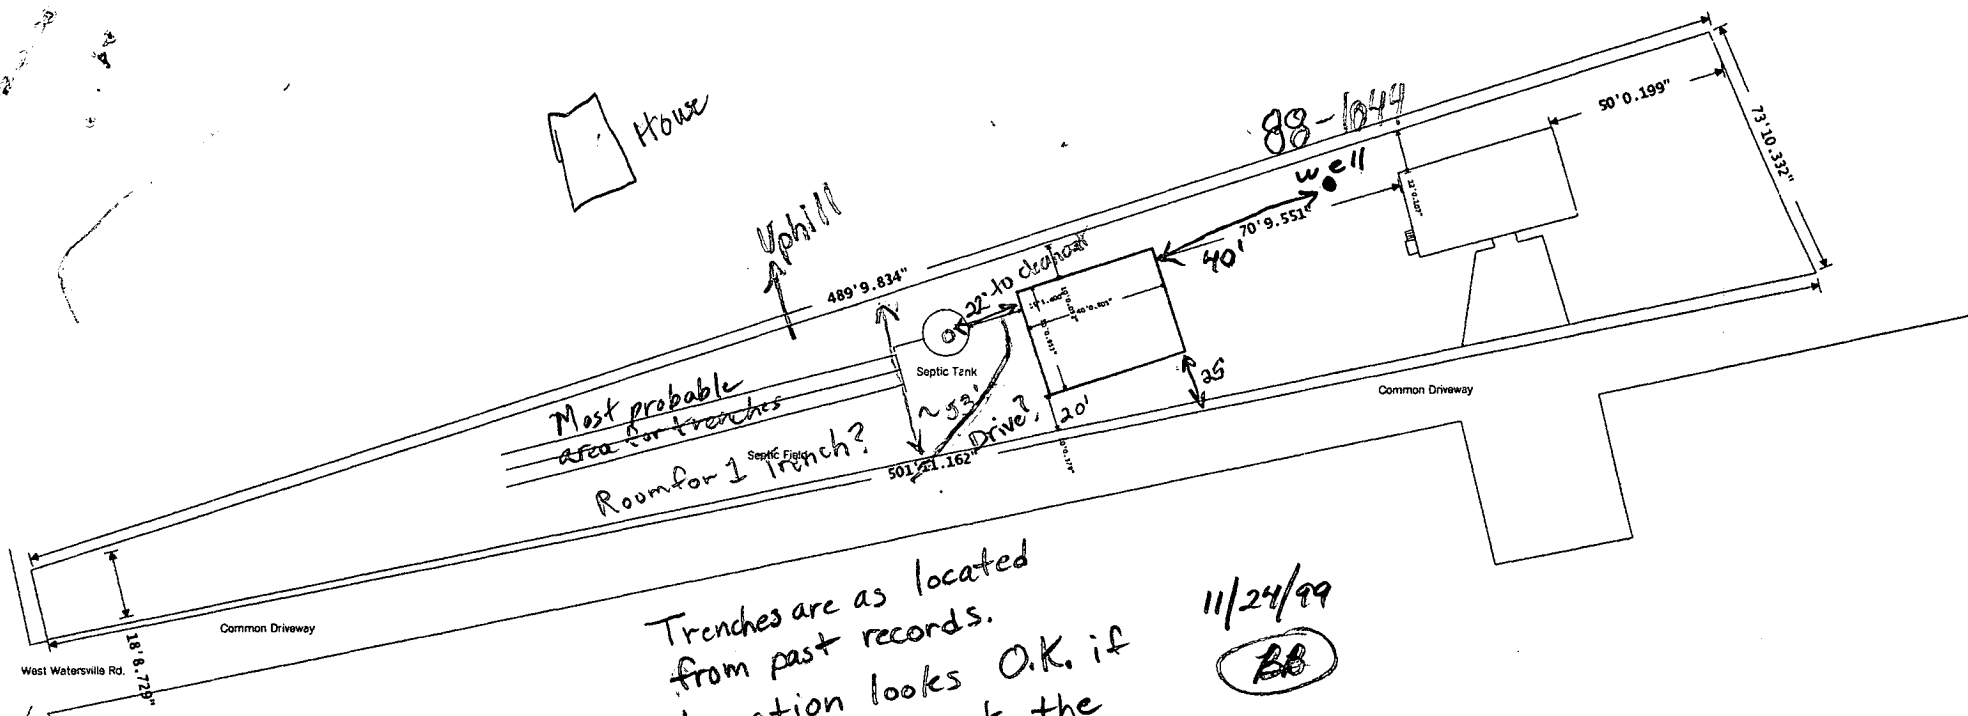 House
Uphill
88-1044
well
50'0.199"
73'10.332"
70'9.551"
40'
489'9.834"
22' to cleanout
Septic Tank
~53'
Drive?
20'
25
Common Driveway
Most probable
area for trenches
Septic Field
Room for 1 Trench?
501'11.162"
Common Driveway
West Watersville Rd.
18'8.729"
Trenches are as located
from past records.
location looks O.K. if
the
11/24/99
BB